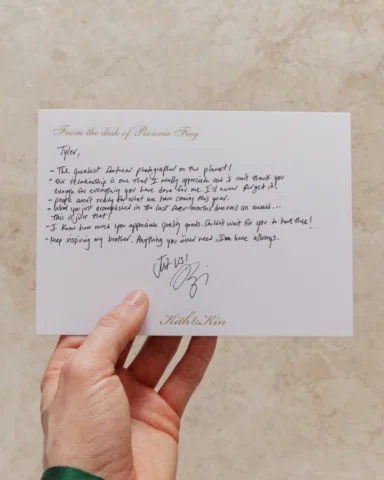 From the desk of Ronnie Fieg
Tyler,
- The greatest footwear photographer on the planet!
- Our relationship is one that I really appreciate and I can't thank you
enough for everything you have done for me. I'll never forget it!
- people aren't ready for what we have coming this year.
- What you just accomplished in the last months deserves an award...
This is just that!
- I know how much you appreciate quality goods. Couldn't wait for you to have this!
- Keep inspiring my brother. Anything you ever need, I'm here always.
Just us!
Kith&Kin